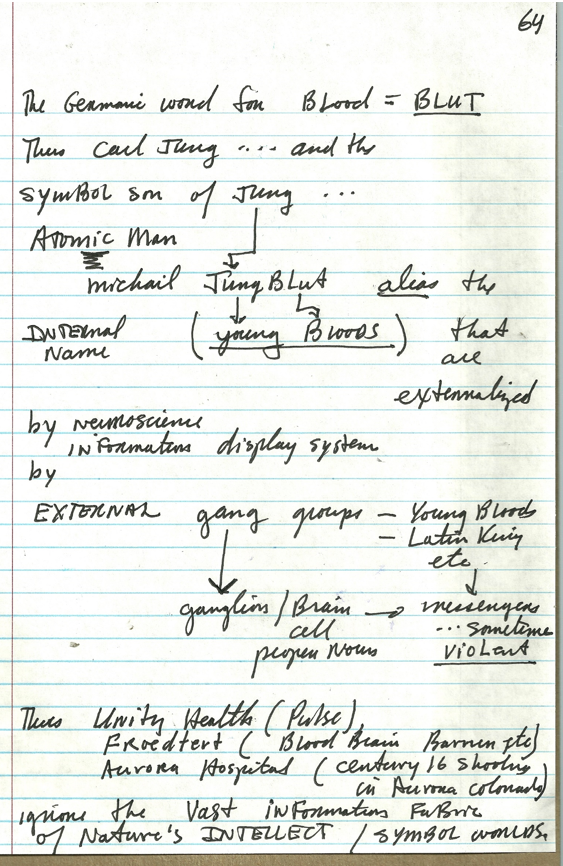 64
The Germanic word for Blood = BLUT
Thus Carl Jung .... and the
symBol son of Jung ...
Atomic Man
michail JungBlut alias the
INTERNAL Name (young Bloods) that
are
externalized
by neuroscience
INFormation display system
by
EXTERNAL gang groups – Young Bloods
– Latin King
etc
ganglions / Brain → messengers
cell ... sometime
proper Nouns VIOLENT
Thus Unity Health (Pulse),
Froedtert (Blood Brain Barrier etc)
Aurora Hospital (century 16 shooting
in Aurora colorado)
ignore the Vast inFormation FaBric
of Nature's INTELLECT / symBol worlds.